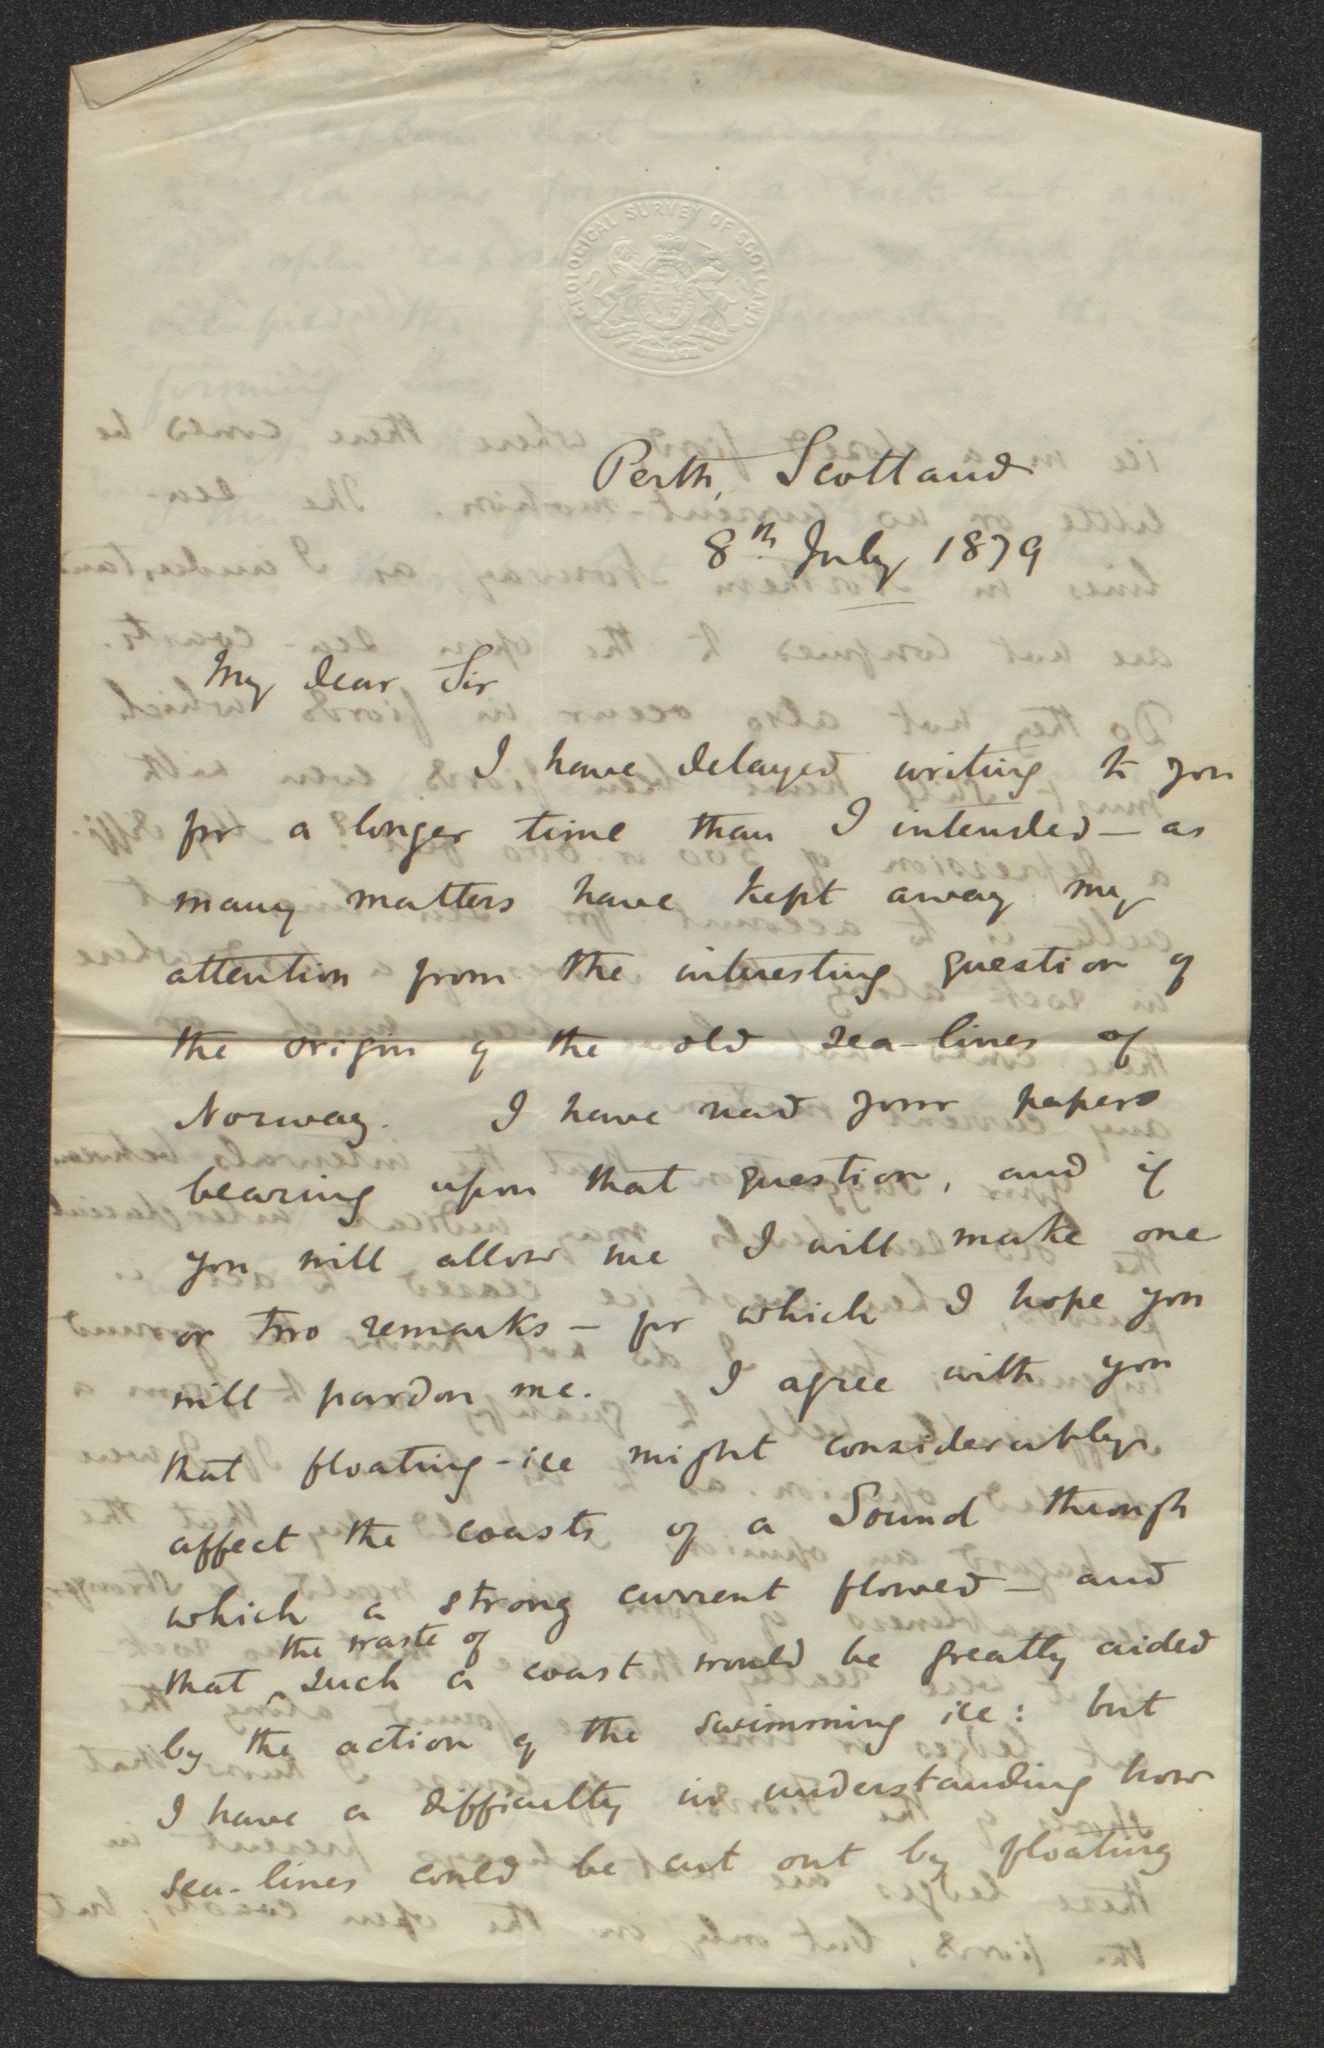 GEOLOGICAL SURVEY OF SCOTLAND
Perth, Scotland
8th July 1879
My dear Sir
I have delayed writing to you
for a longer time than I intended — as
many matters have kept away my
attention from the interesting question of
the origin of the old sea-lines of
Norway. I have read your papers
bearing upon that question, and if
you will allow me I will make one
or two remarks — for which I hope you
will pardon me. I agree with you
that floating-ice might considerably
affect the coasts of a Sound through
which a strong current flowed — and
that the waste of such a coast would be greatly aided
by the action of the swimming ice: but
I have a difficulty in understanding how
sea-lines could be cut out by floating